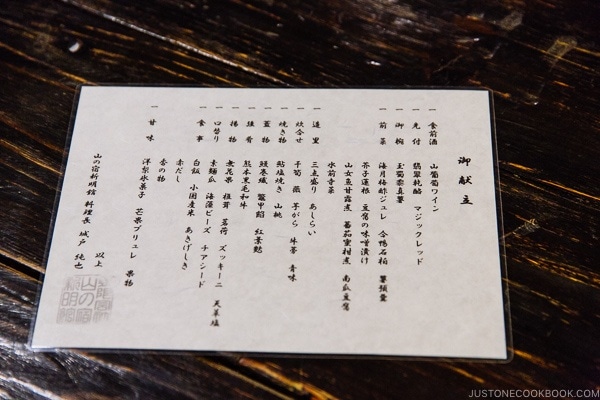 御献立
一 食前酒 山葡萄ワイン
一 先付 翡翠純酪 マジックレッド
一 御椀 玉蜀黍真薯
一 前菜 海月梅酢ジュレ 合鴨石榴
芥子蓮根 豆腐の味噌漬け
山女魚甘露煮 蕃茄蜜柑煮 南瓜豆腐
水前寺菜
一 造里 三点盛り あしらい
一 炊合せ 干筍 薇 芋がら 青味
一 焼き物 鮎塩焼き 山桃
一 蓋物 鰻巻繊 鼈甲餡 紅葉麩
一 強肴 熊本黒毛和牛
一 揚物 無花果 茗荷 ズッキーニ 天草塩
一 口替り 素麺瓜 海藻ビーズ チアシード
一 食事 白飯 小国産米 あきげしき
赤だし
香の物
一 甘味 洋梨氷菓子 芒果ブリュレ 果物
以上
山の宿新明館 料理長 城戸 純也
JUSTONECOOKBOOK.COM